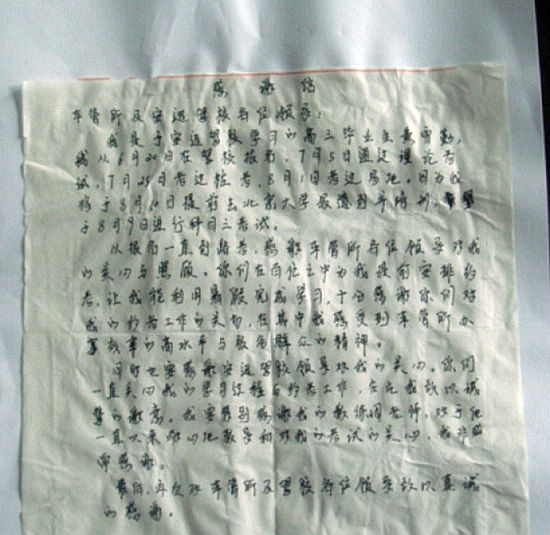 感谢信
车管所及安运驾校各位领导:
我是于安运驾校学习的高三毕业生黄
我从6月20日在驾校报名,7月5日通过理论考
试,7月25日考过桩考,8月1日考过场地。因为我
将于8月10日提前去北京大学报道到并培训,希望
于8月9日进行科目三考试。
从报名一直到路考,感谢车管所各位领导对我
的关心与照顾。你们在百忙之中为我提前安排约
考,让我能利用暑假完成学习,十分感谢你们对
我的约考工作的关切,在其中我感受到车管所办
事效率的高水平与服务群众的精神。
同时也要感谢安运驾校领导对我的关心。你们
一直关心我的学习进程与约考工作,在此致以诚
挚的谢意。我要特别感谢我的教练周老师,对于他
一直以来耐心地教导和对我的考试的关心,我非常
感谢。
最后,再度对车管所及驾校各位领导致以真诚
的感谢。